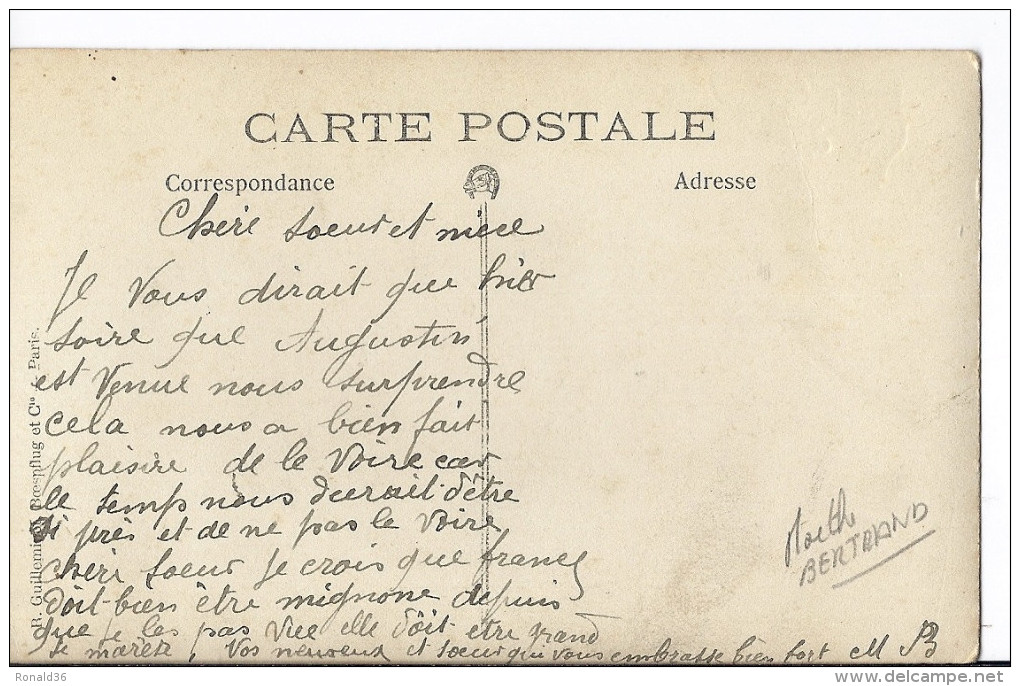 CARTE POSTALE
Correspondance
Adresse
Chère soeur et niece
Je vous dirait que hier
soire que Augustin
est venue nous surprendre
cela nous a bien fait
plaisire de le voire car
le temps nous durait d'être
si près et de ne pas le voire
chéri soeur je crois que
doit bien être mignone depuis
que je les pas vue elle doit etre grand
je m'arète, vos neuveux et soeur qui vous embrasse bien fort M B
BERTRAND
R. Guilleminot, Bœspflug et Cie - Paris.
Ronald36
delcampe.net